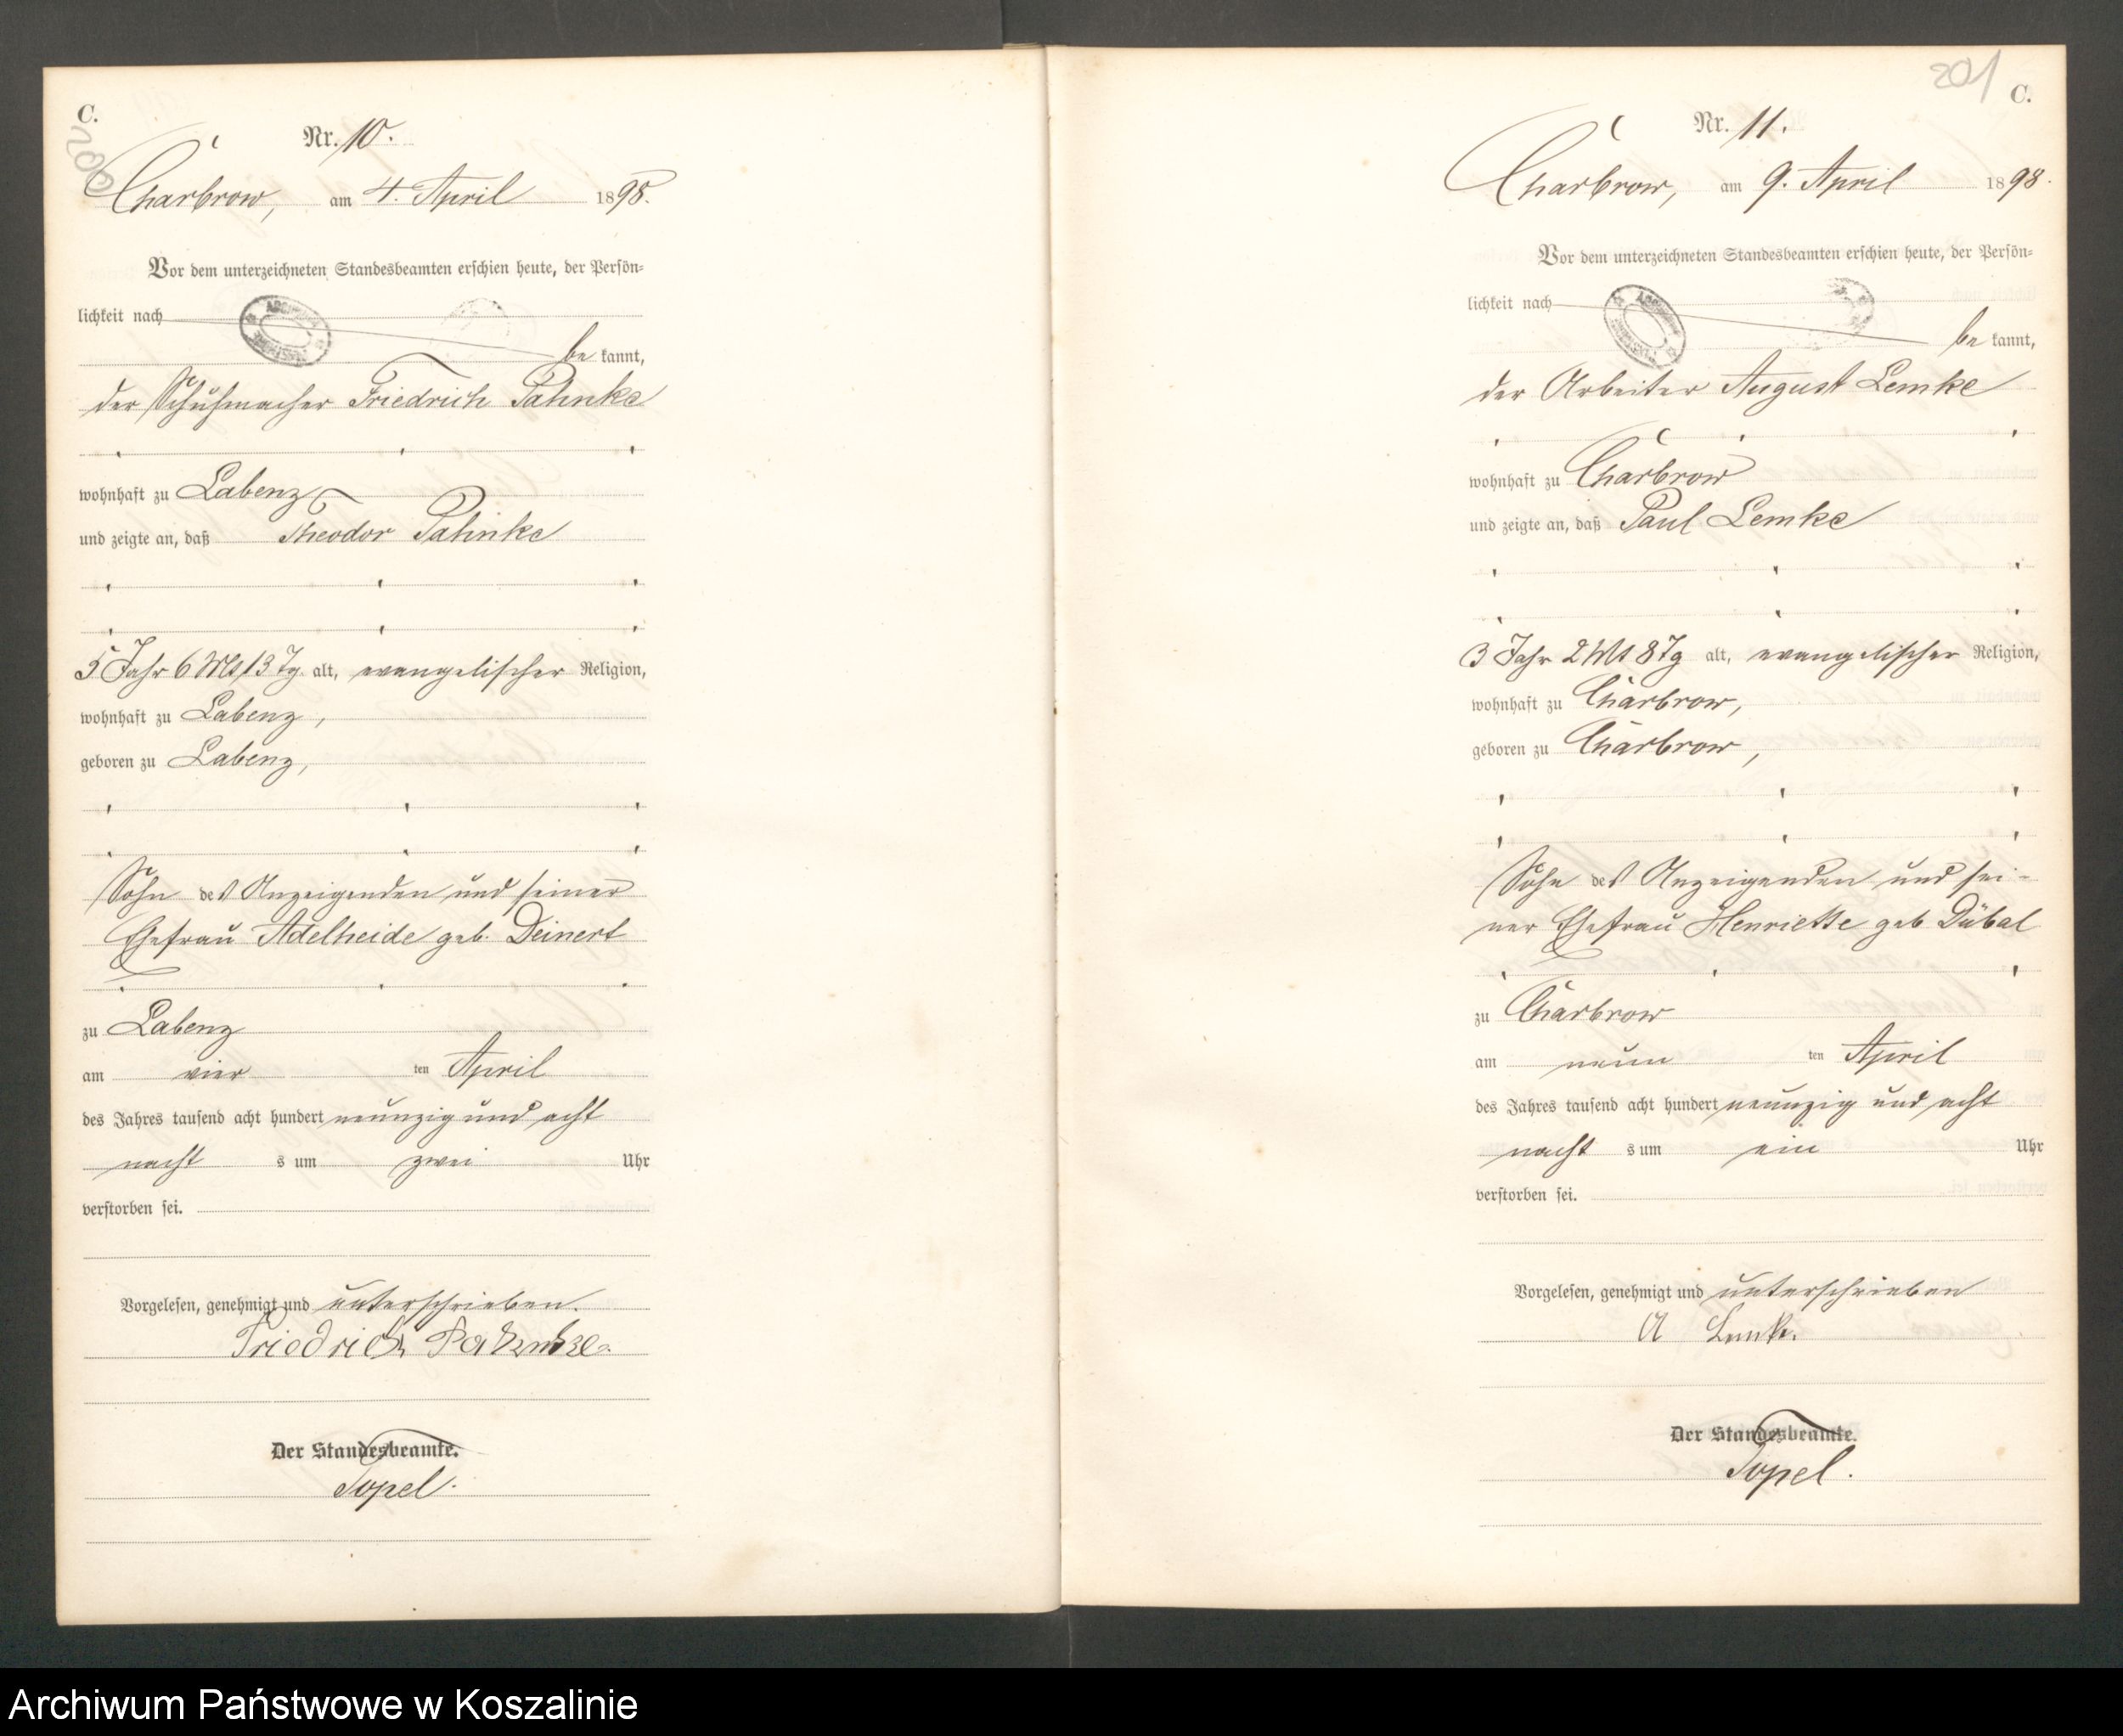 C.
200
Nr. 10.
Charbrow, am 4. April 1898.
Vor dem unterzeichneten Standesbeamten erschien heute, der Persön=
lichkeit nach
be kannt,
der Schuhmacher Friedrich Pahnke
wohnhaft zu Labenz
und zeigte an, daß Theodor Pahnke
5 Jahr 6 Mt 13 Tg. alt, evangelischer Religion,
wohnhaft zu Labenz,
geboren zu Labenz,
Sohn des Anzeigenden und seiner
Ehefrau Adelheide geb. Deinert
zu Labenz
am vier ten April
des Jahres tausend acht hundert neunzig und acht
nacht s um zwei Uhr
verstorben sei.
Vorgelesen, genehmigt und unterschrieben.
Friedrich Pahnke
Der Standesbeamte.
Topel.
201
C.
Nr. 11.
Charbrow, am 9. April 1898.
Vor dem unterzeichneten Standesbeamten erschien heute, der Persön=
lichkeit nach
be kannt,
der Arbeiter August Lemke
wohnhaft zu Charbrow
und zeigte an, daß Paul Lemke
3 Jahr 2 Mt 8 Tg alt, evangelischer Religion,
wohnhaft zu Charbrow,
geboren zu Charbrow,
Sohn des Anzeigenden und sei-
ner Ehefrau Henriette geb Dübal
zu Charbrow
am neun ten April
des Jahres tausend acht hundert neunzig und acht
nacht s um ein Uhr
verstorben sei.
Vorgelesen, genehmigt und unterschrieben
A Lemke
Der Standesbeamte.
Topel.
Archiwum Państwowe w Koszalinie